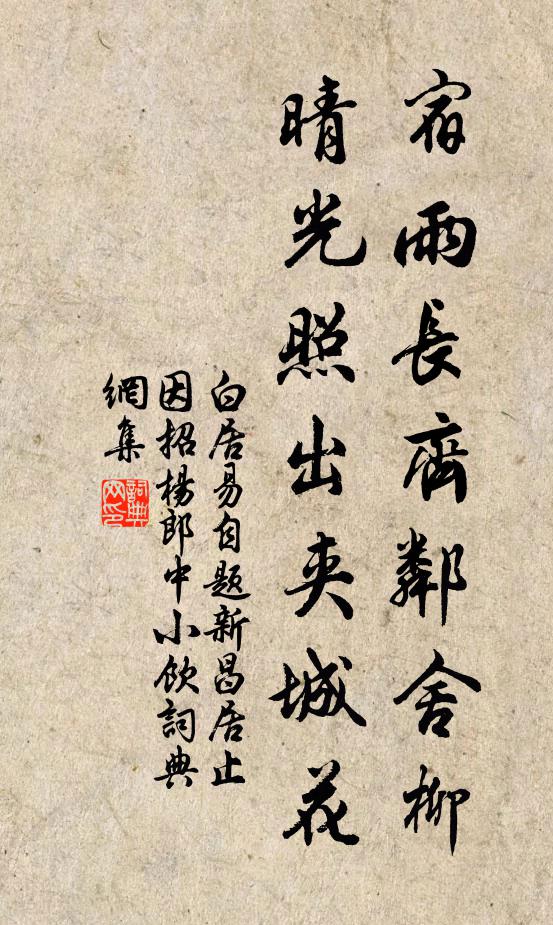 宿雨長齊鄰舍柳
晴光照出夹城花
白居易自题新昌居止
因招楊郎中小飲詞典
網集
詞典
网印